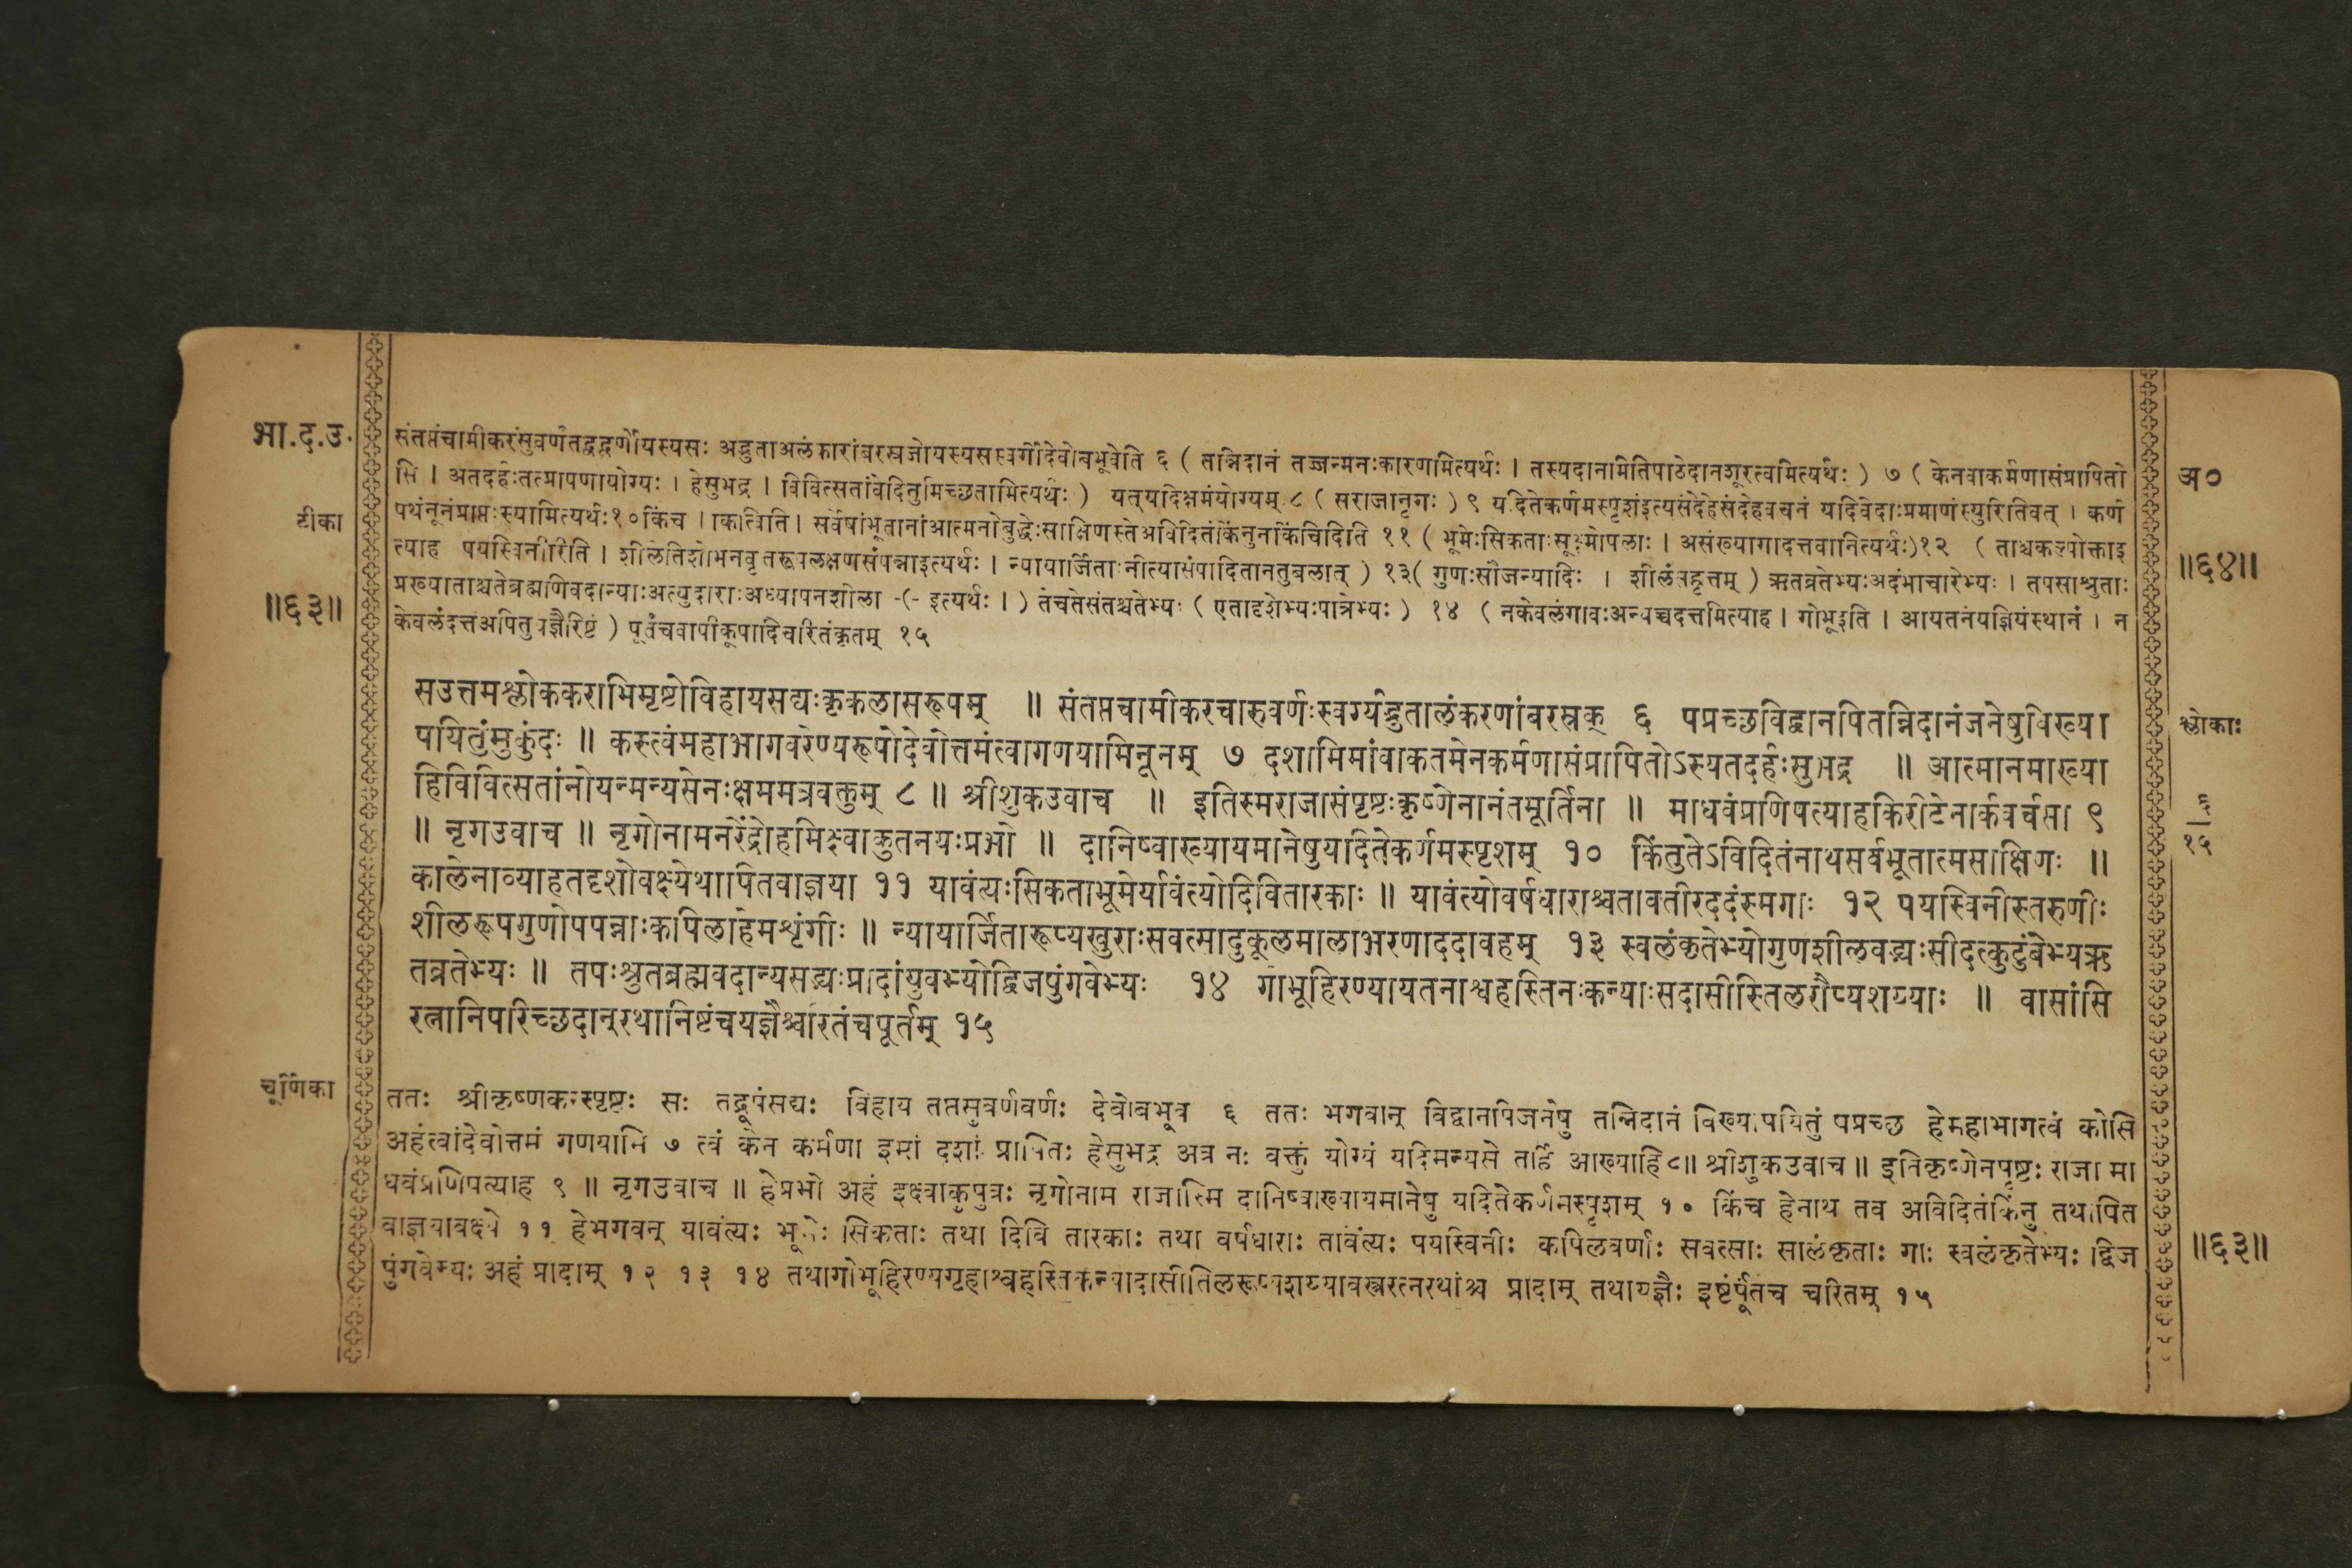 भा.द.उ.
टीका
॥६३॥
संतप्तंचामीकरंसुवर्णंतद्वद्वर्णोयस्यसः अद्भुताअलंकारांबरस्रजोयस्यसस्वर्गीदेवोबभूवेति ६ ( तन्निदानं तज्जन्मनःकारणमित्यर्थः । तस्यदानामितिपाठेदानशूरत्वमित्यर्थः ) ७ ( केनवाकर्मणासंप्रापितो
सि । अतदर्हःतत्प्रापणायोग्यः । हेसुभद्र । विवित्सतांवेदितुमिच्छतामित्यर्थः ) यत्यदिक्षमंयोग्यम् ८ ( सराजानृगः ) ९ यदितेकर्णमस्पृशंइत्यसंदेहेसंदेहवचनं यदिवेदाःप्रमाणंस्युरितिवत् । कर्ण
पथंनूनंप्राप्तःस्यामित्यर्थः१०किंच । किंत्विति । सर्वेषांभूतानांआत्मनोबुद्धेःसाक्षिणस्तेअविदितंकिंनुनकिंचिदिति ११ ( भूमेःसिकताःसूक्ष्मोपलाः । असंख्यागादत्तवानित्यर्थः)१२ ( ताश्चकल्पोक्ताइ
त्याह पयस्विनीरिति । शीलेतिशोभनवृत्तरूपलक्षणसंपन्नाइत्यर्थः । न्यायार्जिताःनीत्यासंपादितानतुबलात् ) १३( गुणःसौजन्यादिः । शीलंसद्वृत्तम् ) ऋतव्रतेभ्यःअदंभाचारेभ्यः । तपसाश्रुताः
प्रख्याताश्चतेब्रह्मणिवदान्याःअत्युदाराःअध्यापनशीला -(- इत्यर्थः । ) तेचतेसंतश्चतेभ्यः ( एतादृशेभ्यःपात्रेभ्यः ) १४ ( नकेवलंगावःअन्यच्चदत्तमित्याह । गोभूइति । आयतनंयज्ञियंस्थानं । न
केवलंदत्तंअपितुयज्ञैरिष्टं ) पूर्तंचवापीकूपादिचरितंकृतम् १५
अ०
॥६४॥
सउत्तमश्लोककराभिमृष्टोविहायसद्यःकृकलासरूपम् ॥ संतप्तचामीकरचारुवर्णःस्वर्ग्यद्भुतालंकरणांबरस्रक् ६ पप्रच्छविद्वानपितन्निदानंजनेषुविख्या
पयितुंमुकुंदः ॥ कस्त्वंमहाभागवरेण्यरूपोदेवोत्तमंत्वागणयामिनूनम् ७ दशामिमांवाकतमेनकर्मणासंप्रापितोऽस्यतदर्हःसुभद्र ॥ आत्मानमाख्या
हिविवित्सतांनोयन्मन्यसेनःक्षममत्रवक्तुम् ८ ॥ श्रीशुकउवाच ॥ इतिस्मराजासंपृष्टःकृष्णेनानंतमूर्तिना ॥ माधवंप्रणिपत्याहकिरीटेनार्कवर्चसा ९
॥ नृगउवाच ॥ नृगोनामनरेंद्रोहमिक्ष्वाकुतनयःप्रभो ॥ दानिष्वाख्यायमानेषुयदितेकर्णमस्पृशम् १० किंतुतेऽविदितंनाथसर्वभूतात्मसाक्षिणः ॥
कालेनाव्याहतदृशोवक्ष्येथापितवाज्ञया ११ यावंत्यःसिकताभूमेर्यावंत्योदिवितारकाः ॥ यावंत्योवर्षधाराश्चतावतीरददंस्मगाः १२ पयस्विनीस्तरुणीः
शीलरूपगुणोपपन्नाःकपिलाहेमशृंगीः ॥ न्यायार्जितारूप्यखुराःसवत्सादुकूलमालाभरणाददावहम् १३ स्वलंकृतेभ्योगुणशीलवद्भ्यःसीदत्कुटुंबेभ्यऋ
तव्रतेभ्यः ॥ तपःश्रुतब्रह्मवदान्यसद्भ्यःप्रादांयुवभ्योद्विजपुंगवेभ्यः १४ गोभूहिरण्यायतनाश्वहस्तिनःकन्याःसदासीस्तिलरौप्यशय्याः ॥ वासांसि
रत्नानिपरिच्छदान्रथानिष्टंचयज्ञैश्चरितंचपूर्तम् १५
श्लोकाः
६
१५
चूर्णिका
ततः श्रीकृष्णकरस्पृष्टः सः तद्रूपंसद्यः विहाय तप्तसुवर्णवर्णः देवोबभूव ६ ततः भगवान् विद्वानपिजनेषु तन्निदानं विख्यापयितुं पप्रच्छ हेमहाभागत्वं कोसि
अहंत्वांदेवोत्तमं गणयामि ७ त्वं केन कर्मणा इमां दशां प्रापितः हेसुभद्र अत्र नः वक्तुं योग्यं यदिमन्यसे तर्हि आख्याहि८॥ श्रीशुकउवाच ॥ इतिकृष्णेनपृष्टः राजा मा
धवंप्रणिपत्याह ९ ॥ नृगउवाच ॥ हेप्रभो अहं इक्ष्वाकुपुत्रः नृगोनाम राजास्मि दानिष्वाख्यायमानेषु यदितेकर्णमस्पृशम् १० किंच हेनाथ तव अविदितंकिंनु तथापित
वाज्ञयावक्ष्ये ११ हेभगवन् यावंत्यः भूमेः सिकताः तथा दिवि तारकाः तथा वर्षधाराः तावंत्यः पयस्विनीः कपिलवर्णाः सवत्साः सालंकृताः गाः स्वलंकृतेभ्यः द्विज
पुंगवेभ्यः अहं प्रादाम् १२ १३ १४ तथागोभूहिरण्यगृहाश्वहस्तिकन्यादासीतिलरूप्यशय्यावस्त्ररत्नरथांश्च प्रादाम् तथायज्ञैः इष्टंपूर्तंच चरितम् १५
॥६३॥